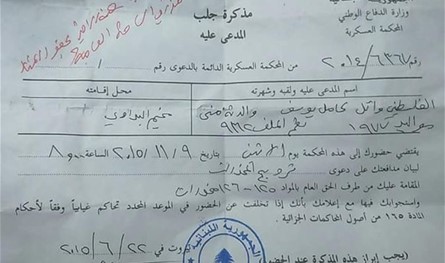 وزارة الدفاع الوطني
المحكمة العسكرية
مذكرة جلب
المدعى عليه
رقم ٢٠١٤/٦٣٦٧ من المحكمة العسكرية الدائمة بالدعوى رقم /
اسم المدعى عليه ولقبه وشهرته
محل إقامته
الفلسطيني وائل كامل يوسف والدته منى
مخيم البداوي
١٩٧٧ رقم الملف ٩٣٢
يقتضي حضورك إلى هذه المحكمة يوم الاثنين بتاريخ ٢٠١٥/١١/٩ الساعة ٨٫٠٠
لبيان مدافعتك على دعوى ترويج المخدرات
المقامة عليك من طرف الحق العام بالمواد ١٢٥-١٢٦ مخدرات
واستجوابك فيها مع إعلامك بأنه إذا تخلفت عن الحضور في الموعد المحدد تحاكم غيابياً وفقاً لأحكام
المادة ١٦٥ من أصول المحاكمات الجزائية .
بيروت في ٢٠١٥/٦/٢٢
الجمهورية اللبنانية
(يجب إبراز هذه المذكرة عند الحضور